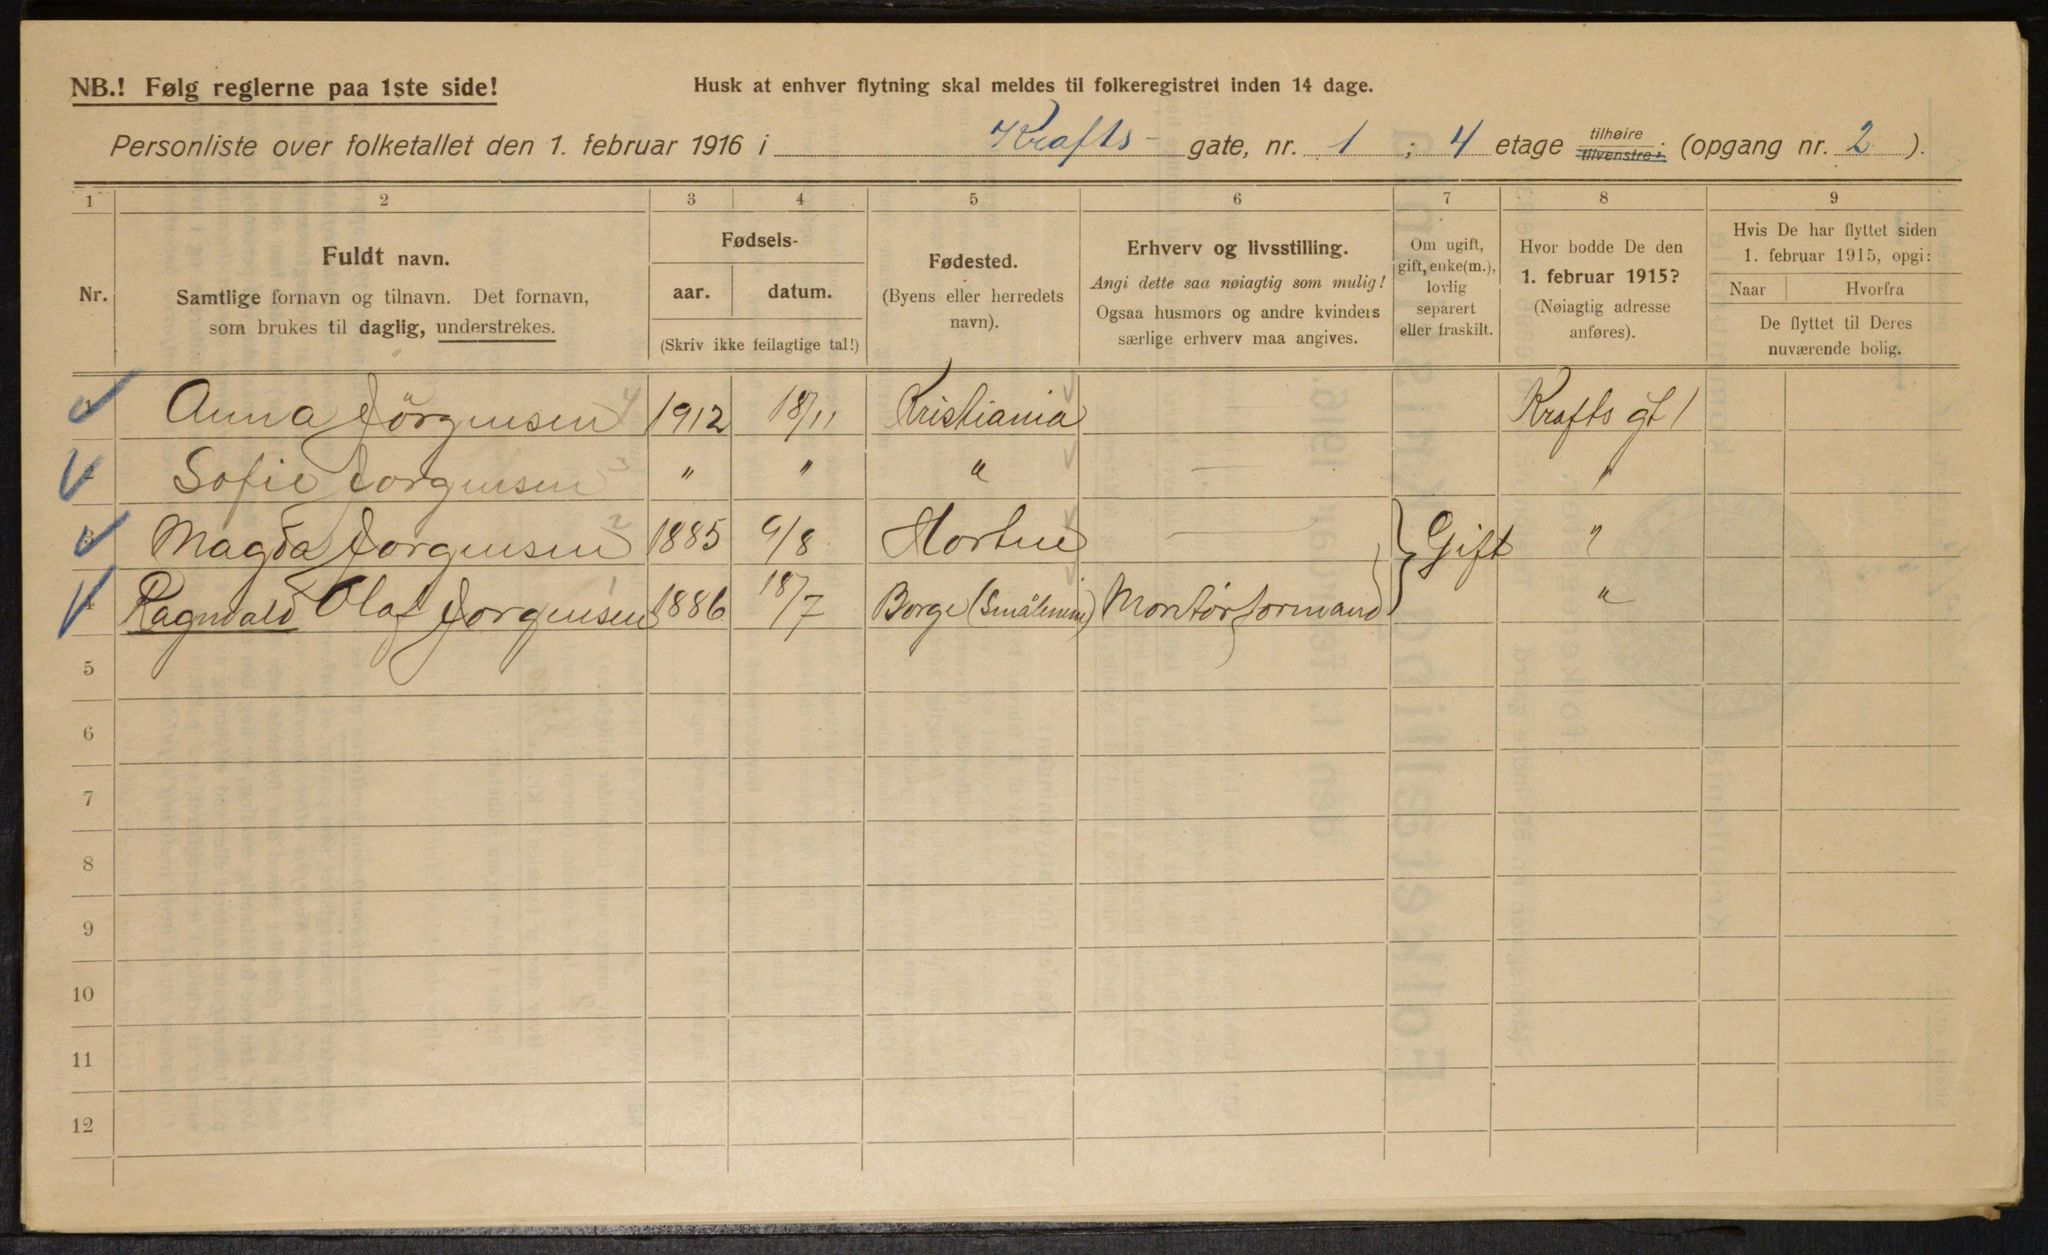 NB.! Følg reglerne paa 1ste side!
Husk at enhver flytning skal meldes til folkeregistret inden 14 dage.
Personliste over folketallet den 1. februar 1916 i Krafts- gate, nr. 1 ; 4 etage tilhøire tilvenstre; (opgang nr. 2 ).
1 2 3 4 5 6 7 8 9
Nr.
Fuldt navn.
Samtlige fornavn og tilnavn. Det fornavn,
som brukes til daglig, understrekes.
Fødsels-
aar. datum.
(Skriv ikke feilagtige tal!)
Fødested.
(Byens eller herredets
navn).
Erhverv og livsstilling.
Angi dette saa nøiagtig som mulig!
Ogsaa husmors og andre kvinders
særlige erhverv maa angives.
Om ugift,
gift, enke(m.),
lovlig
separert
eller fraskilt.
Hvor bodde De den
1. februar 1915?
(Nøiagtig adresse
anføres).
Hvis De har flyttet siden
1. februar 1915, opgi:
Naar Hvorfra
De flyttet til Deres
nuværende bolig.
Anna Jörgensen 4 1912 18/11 Kristiania — Krafts gt 1
Sofie Jorgensen 3 " " " — "
3 Magda Jorgensen 2 1885 9/8 Horten — Gift "
4 Ragnvald Olaf Jorgensen 1 1886 18/7 Borge (Smålenene) Montørformand "
5
6
7
8
9
10
11
12